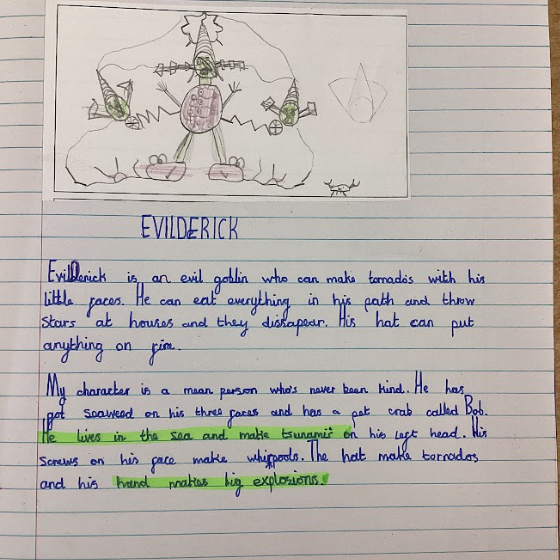 EVILDERICK
EvilDerick is an evil goblin who can make tornados with his
little faces. He can eat everything in his path and throw
stars at houses and they dissapear. His hat can put
anything on fire.
My character is a mean person who's never been kind. He has
got seaweed on his three faces and has a pet crab called Bob.
He lives in the sea and make tsunamis on his left head. His
screws on his face make whirpools. The hat make tornados
and his hand makes big explosions.